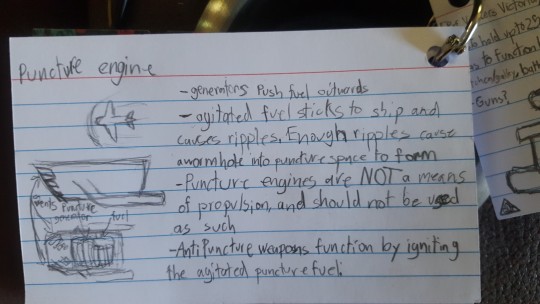 Puncture engine
-generators Push fuel outwards
-agitated fuel sticks to ship and
causes ripples. Enough ripples cause
a wormhole into puncture space to form
-Puncture engines are NOT a means
of propulsion, and should not be used
as such
-Anti Puncture weapons function by igniting
the agitated puncture fuel.
vents
generator
fuel
Victoria
hold up to 25
to Function
Guns?